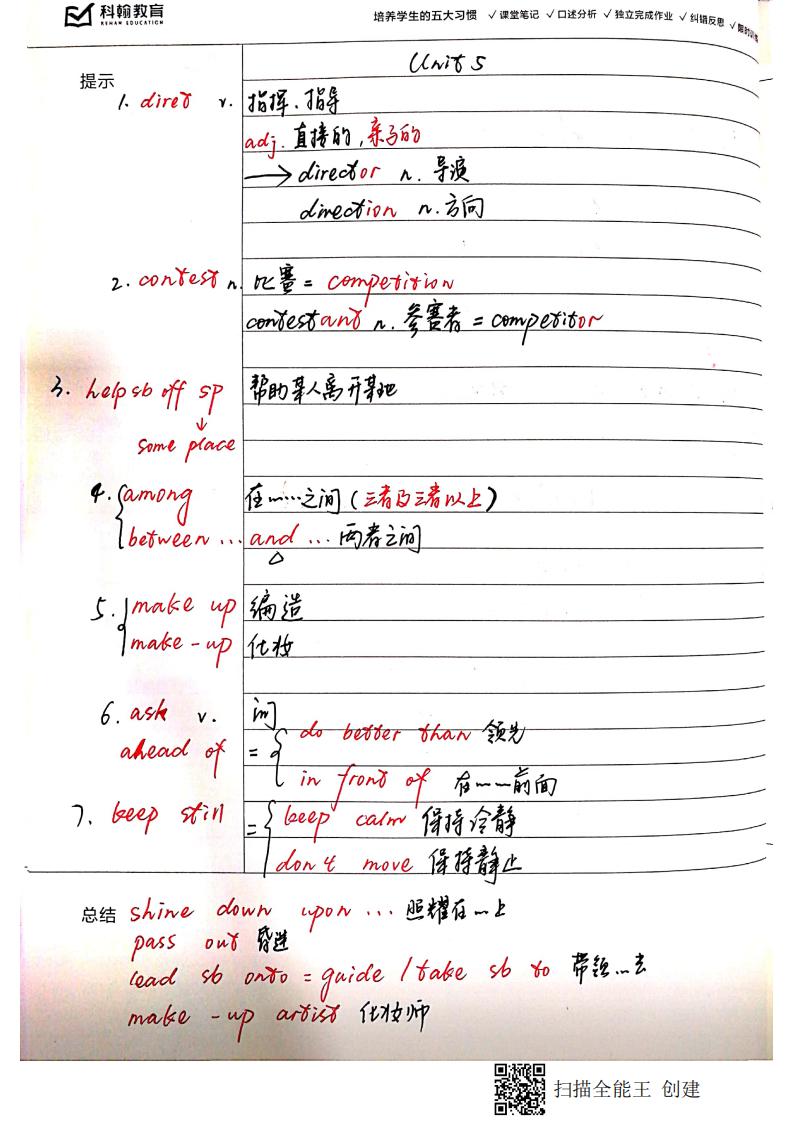 科翰教育
KEHAN EDUCATION
培养学生的五大习惯 ✓课堂笔记 ✓口述分析 ✓独立完成作业 ✓纠错反思
Unit 5
提示
1. diret v. 指挥、指导
adj. 直接的, 亲自的
→ director n. 导演
direction n. 方向
2. contest n. 比赛 = competition
contestant n. 参赛者 = competitor
3. help sb off sp 帮助某人离开某地
↓
some place
4. among 在……之间 (三者及三者以上)
between ... and ... 两者之间
5. make up 编造
make-up 化妆
6. ask v. 问
ahead of = do better than 领先
in front of 在……前面
7. keep still = keep calm 保持冷静
don't move 保持静止
总结 shine down upon ... 照耀在…上
pass out 昏迷
lead sb onto = guide / take sb to 带领…去
make-up artist 化妆师
扫描全能王 创建